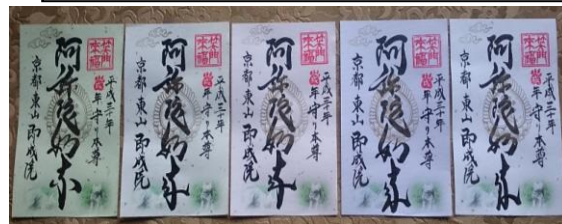 平成三十年
年守り本尊
阿弥陀如来
京都東山 即成院
平成三十年
年守り本尊
阿弥陀如来
京都東山 即成院
平成三十年
年守り本尊
阿弥陀如来
京都東山 即成院
平成三十年
年守り本尊
阿弥陀如来
京都東山 即成院
平成三十年
年守り本尊
阿弥陀如来
京都東山 即成院